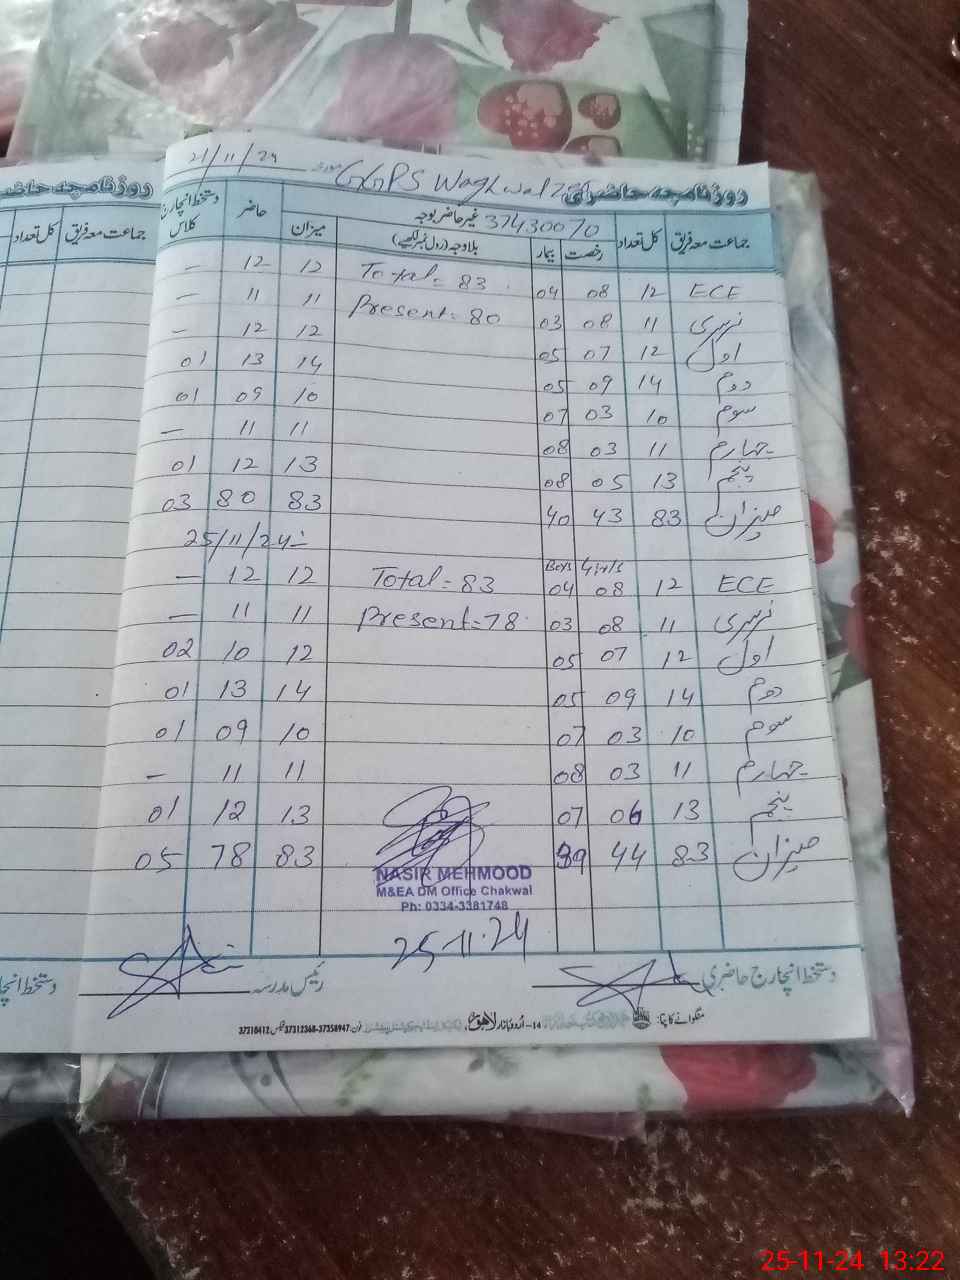 21/11/24 GGPS Waghwal
روزنامچہ حاضری
37430070
جماعت معہ فریق کل تعداد رخصت بیمار غیر حاضر بوجہ بلا وجہ (رول نمبر لکھیے) میزان حاضر دستخط انچارج کلاس
ECE 12 08 04 Total = 83 12 12 —
نرسری 11 08 03 Present = 80 11 11 —
اول 12 07 05 12 12 —
دوم 14 09 05 14 13 01
سوم 10 03 07 10 09 01
چہارم 11 03 08 11 11 —
پنجم 13 05 08 13 12 01
میزان 83 43 40 83 80 03
25/11/24
Boys Girls
ECE 12 08 04 Total = 83 12 12 —
نرسری 11 08 03 Present = 78 11 11 —
اول 12 07 05 12 10 02
دوم 14 09 05 14 13 01
سوم 10 03 07 10 09 01
چہارم 11 03 08 11 11 —
پنجم 13 06 07 13 12 01
میزان 83 44 39 83 78 05
NASIR MEHMOOD
M&EA DM Office Chakwal
Ph: 0334-3381748
25-11-24
دستخط انچارج حاضری رئیس مدرسہ
منگوانے کا پتہ: 14-اُردو بازار لاہور فون: 37312368-37358947 فیکس: 37310412
روزنامچہ
جماعت معہ فریق کل تعداد
25-11-24 13:22